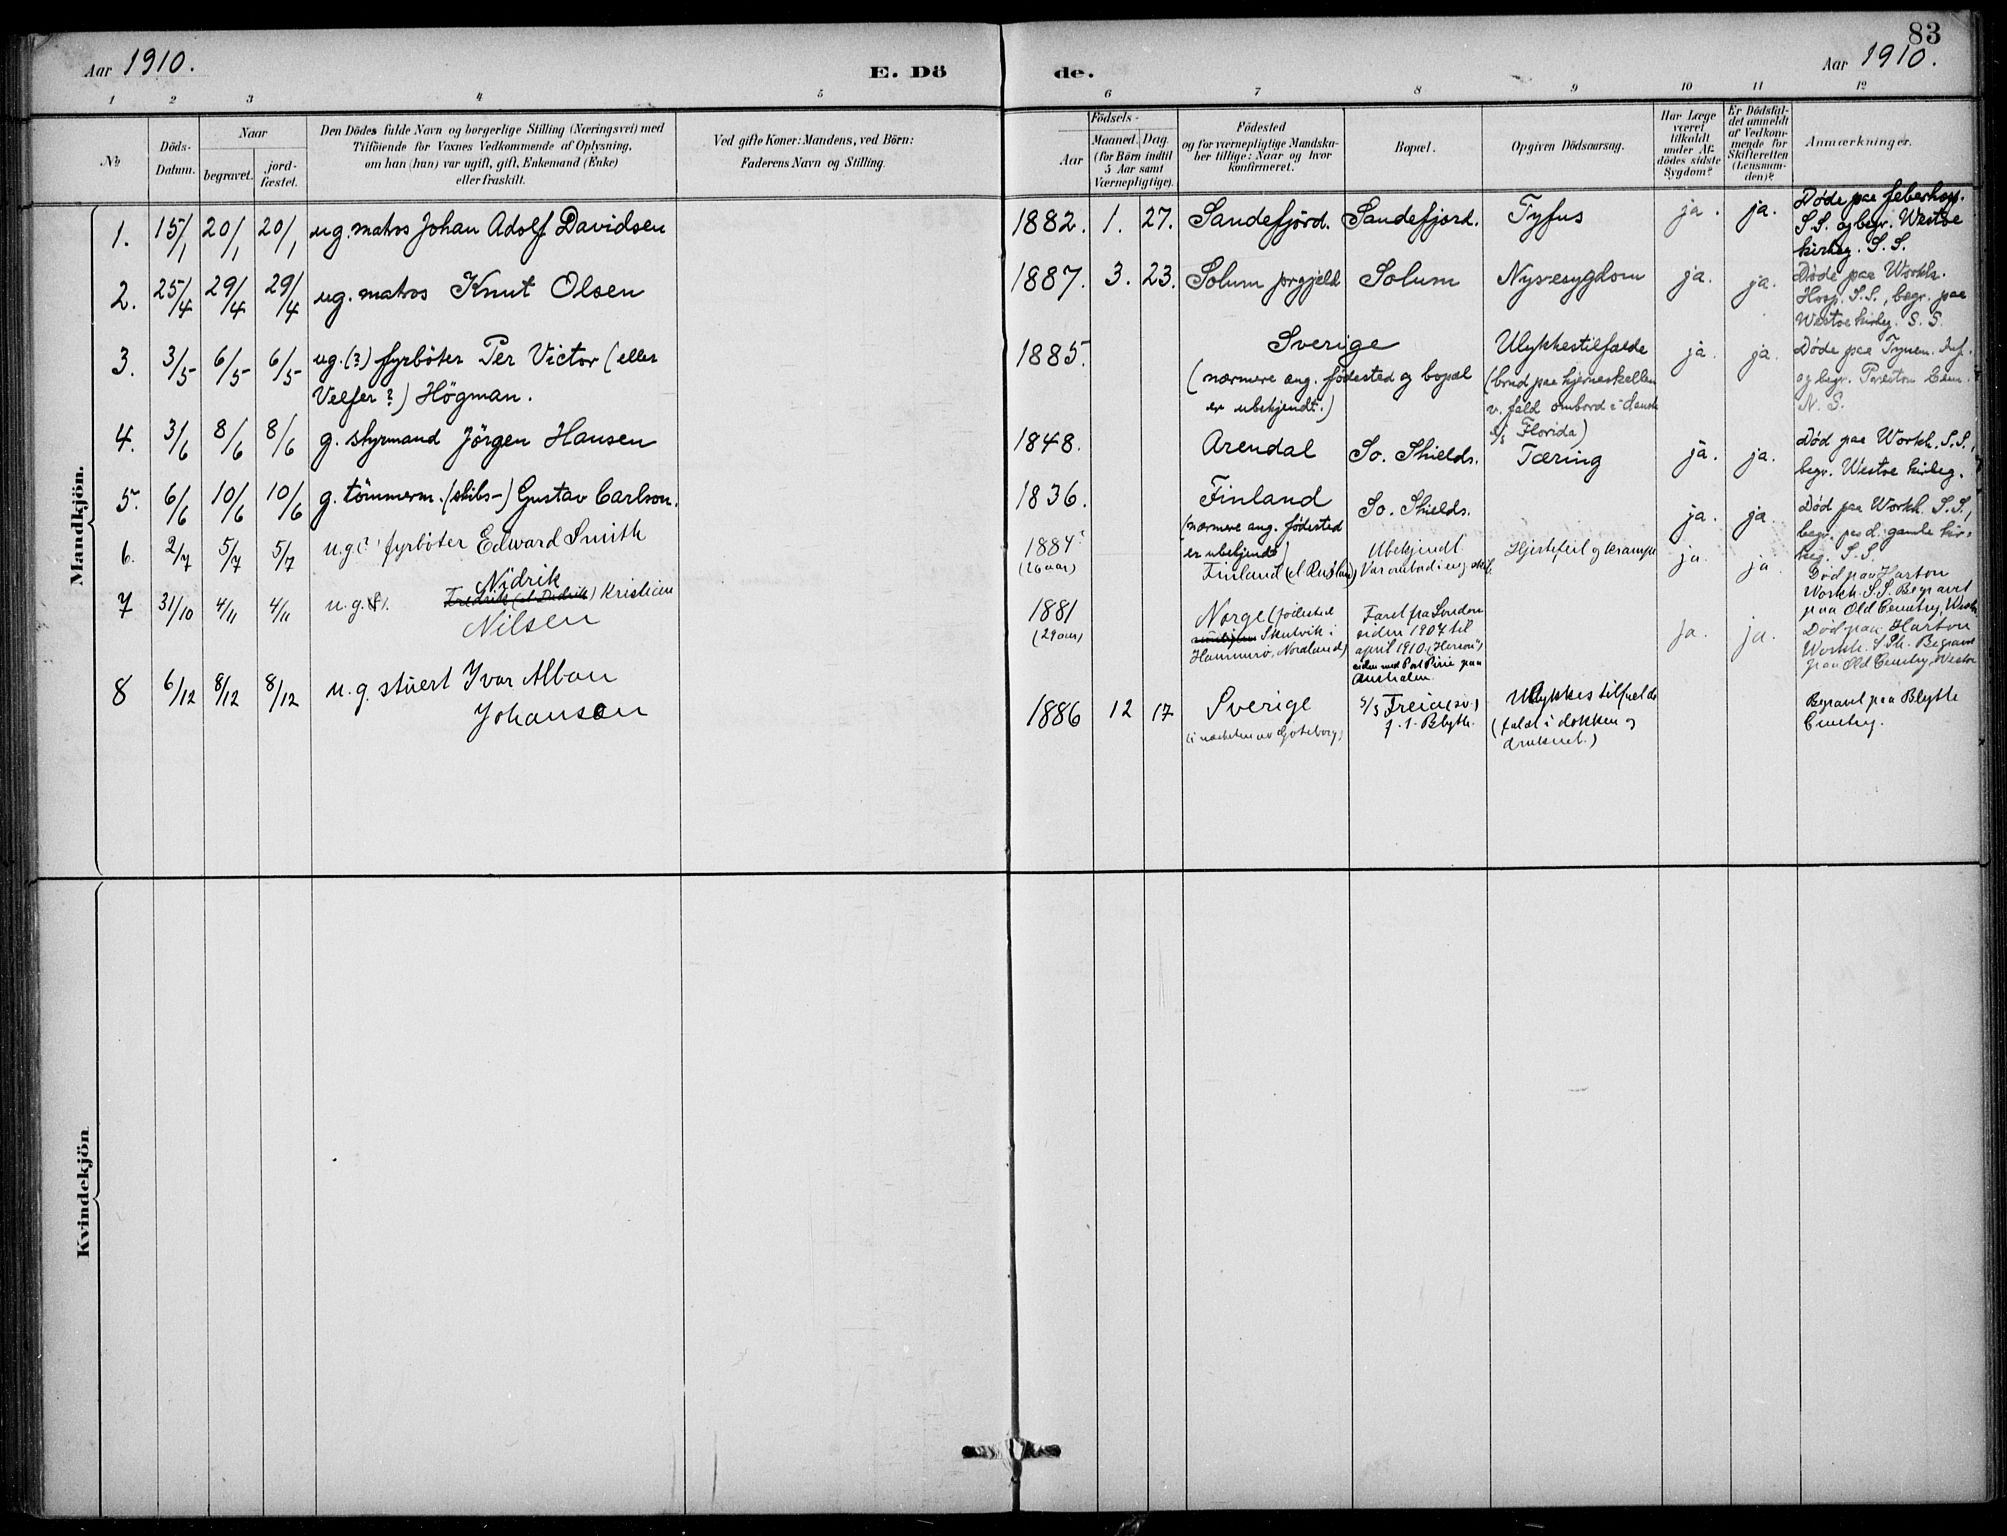 83
Aar 1910.
E. Dö
de.
Aar 1910.
1 2 3 4 5 6 7 8 9 10 11 12
No
Döds-Datum.
Naar
begravet.
jord-fæstet.
Den Dödes fulde Navn og borgerlige Stilling (Næringsvei) med
Tilföiende for Voxnes Vedkommende af Oplysning,
om han (hun) var ugift, gift, Enkemand (Enke)
eller fraskilt.
Ved gifte Koner: Mandens, ved Börn:
Faderens Navn og Stilling.
Födsels-
Aar
Maaned. Dag.
(for Börn indtil
5 Aar samt
Værnepligtige).
Födested
og for værnepligtige Mandska-
ber tillige: Naar og hvor
konfirmeret.
Bopæl.
Opgiven Dödsaarsag.
Har Læge
været
tilkaldt
under Af-
dödes sidste
Sygdom?
Er Dödsfal-
det anmeldt
af Vedkom-
mende for
Skifteretten
(Lensman-
den)?
Anmærkninger.
Mandkjön.
1. 15/1 20/1 20/1 ug. matros Johan Adolf Davidsen
1882. 1. 27. Sandefjörd. Sandefjord. Tyfus ja. ja.
Døde paa feberhosp.
S.S. og begr. Westoe
kirkeg. S.S.
2. 25/4 29/4 29/4 ug. matros Knut Olsen
1887. 3. 23. Solum prgjeld Solum Nyresygdom ja. ja.
Døde paa Workh.
Hosp. S.S., begr. paa
Westoe kirkeg. S.S.
3. 3/5 6/5 6/5 ug. (?) fyrböter Per Victor (eller
Velfer?) Högman.
1885. Sverige
(nærmere ang. födested og bopæl
er ubekjendt.)
Ulykkestilfælde
(brud paa hjerneskallen
v. fald ombord i dansk
s/s Florida)
ja. ja.
Døde paa Tynem. Inf.
og begr. Preston Cem.
N. S.
4. 3/6 8/6 8/6 g. styrmand Jörgen Hansen
1848. Arendal So. Shields. Tæring ja. ja.
Død paa Workh. S.S.,
begr. Westoe kirkeg.
5. 6/6 10/6 10/6 g. tömmerm. (skibs-) Gustav Carlson.
1836. Finland
(nærmere ang. födested
er ubekjendt)
So. Shields. ja. ja.
Død paa Workh. S.S.,
begr. paa d. gamle kir-
keg. S.S.
6. 2/7 5/7 5/7 u.g.? fyrböter Edward Smith
1884?
(26 aar)
Finland (el. Rusland)
Ubekjendt
Var ombord i eng. skib.
Hjertefeil og krampe ja. ja.
Død paa Harton
Workh. S.S. Begravet
paa Old Cemetry, Westoe
7 31/10 4/11 4/11 u.g.
Nidrik
Fredrik (el. Didrik) Kristian
Nilsen
1881
(29 aar)
Norge (fødested
Skutvik i
Hammerö, Nordland)
Faret fra London
siden 1907 til
april 1910 ("Heron")
siden med Port Pirie paa
Australien.
ja. ja.
Død paa Harton
Workh. S.Sh. Begravet
paa Old Cemetry, Westoe
8 6/12 8/12 8/12 u.g. stuert Ivar Alban
Johanson
1886 12 17 Sverige
(i nærheten av Göteborg)
s/s Freia (sv.)
p. t. Blyth.
Ulykkestilfælde
(faldt i dokken og
druknet.)
Begravet paa Blyth
Cemetry.
Kvindekjön